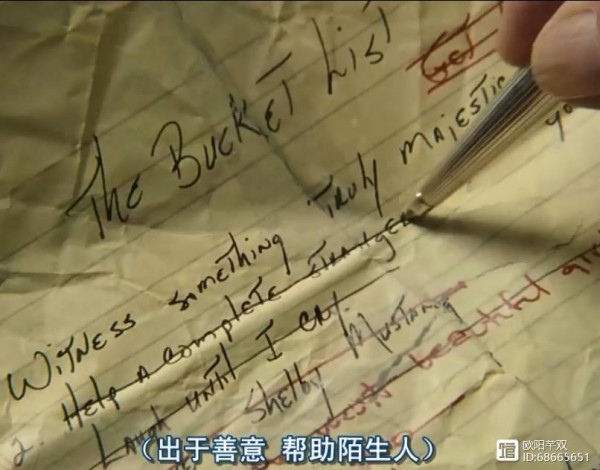 The Bucket List
Get
Witness something truly majestic
2. Help a complete stranger
Laugh until I cry
Shelby Mustang
beautiful girl
（出于善意 帮助陌生人）
欧阳芊双
ID:68665651